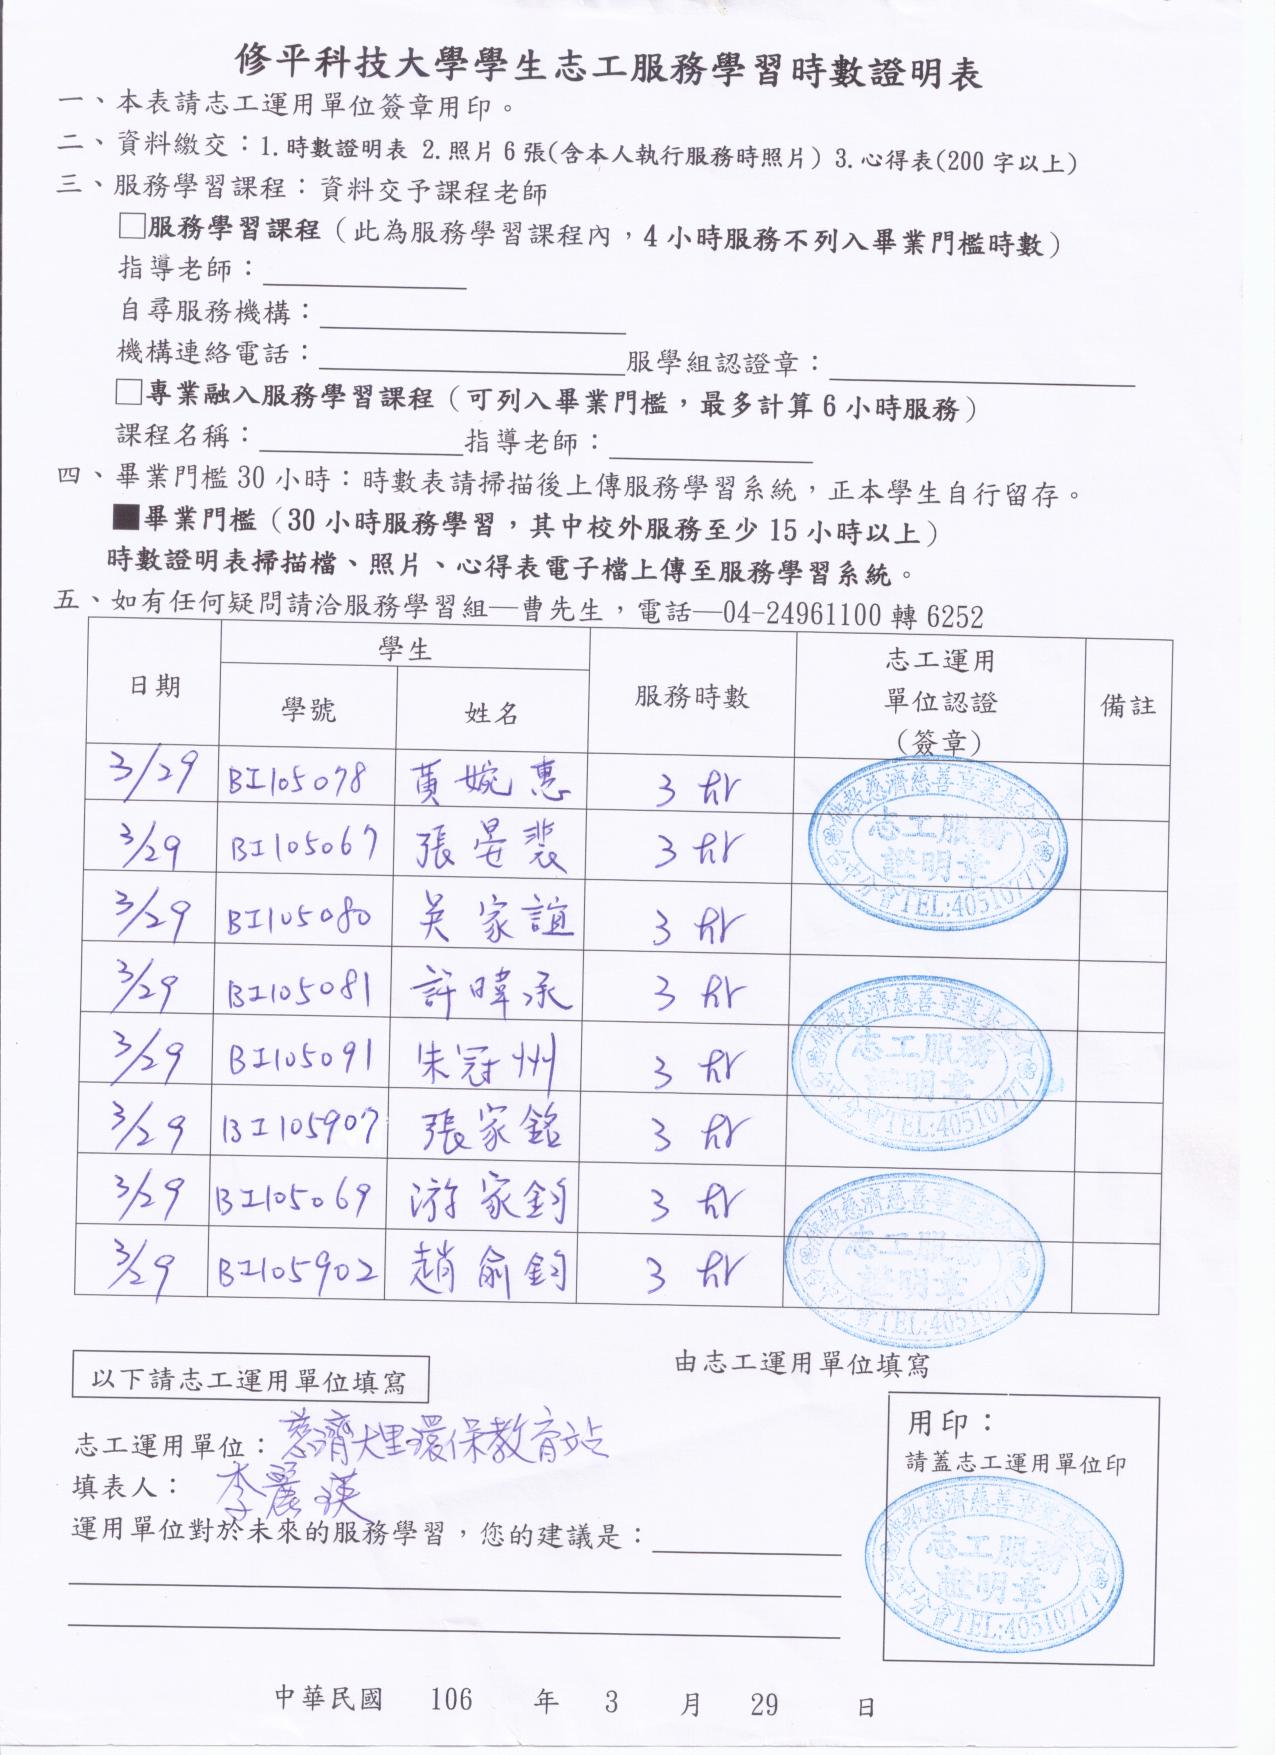 修平科技大學學生志工服務學習時數證明表
一、本表請志工運用單位簽章用印。
二、資料繳交：1.時數證明表 2.照片6張(含本人執行服務時照片) 3.心得表(200字以上)
三、服務學習課程：資料交予課程老師
□服務學習課程（此為服務學習課程內，4小時服務不列入畢業門檻時數）
指導老師：
自尋服務機構：
機構連絡電話： 服學組認證章：
□專業融入服務學習課程（可列入畢業門檻，最多計算6小時服務）
課程名稱： 指導老師：
四、畢業門檻30小時：時數表請掃描後上傳服務學習系統，正本學生自行留存。
■畢業門檻（30小時服務學習，其中校外服務至少15小時以上）
時數證明表掃描檔、照片、心得表電子檔上傳至服務學習系統。
五、如有任何疑問請洽服務學習組—曹先生，電話—04-24961100轉6252
日期 學生 服務時數 志工運用單位認證（簽章） 備註
學號 姓名
3/29 BI105078 黃婉惠 3 hr
3/29 BI105067 張晏裴 3 hr
3/29 BI105080 吳家誼 3 hr
3/29 BI105081 許暐承 3 hr
3/29 BI105091 朱冠州 3 hr
3/29 BI105907 張家銘 3 hr
3/29 BI105069 游家鈞 3 hr
3/29 BI105902 趙俞鈞 3 hr
佛教慈濟慈善事業基金會
志工服務
證明章
台中分會TEL:40510777
佛教慈濟慈善事業基金會
志工服務
證明章
台中分會TEL:40510777
佛教慈濟慈善事業基金會
志工服務
證明章
台中分會TEL:40510777
以下請志工運用單位填寫
由志工運用單位填寫
志工運用單位：慈濟大里環保教育站
填表人：李麗瑛
運用單位對於未來的服務學習，您的建議是：
用印：
請蓋志工運用單位印
佛教慈濟慈善事業基金會
志工服務
證明章
台中分會TEL:40510777
中華民國 106 年 3 月 29 日